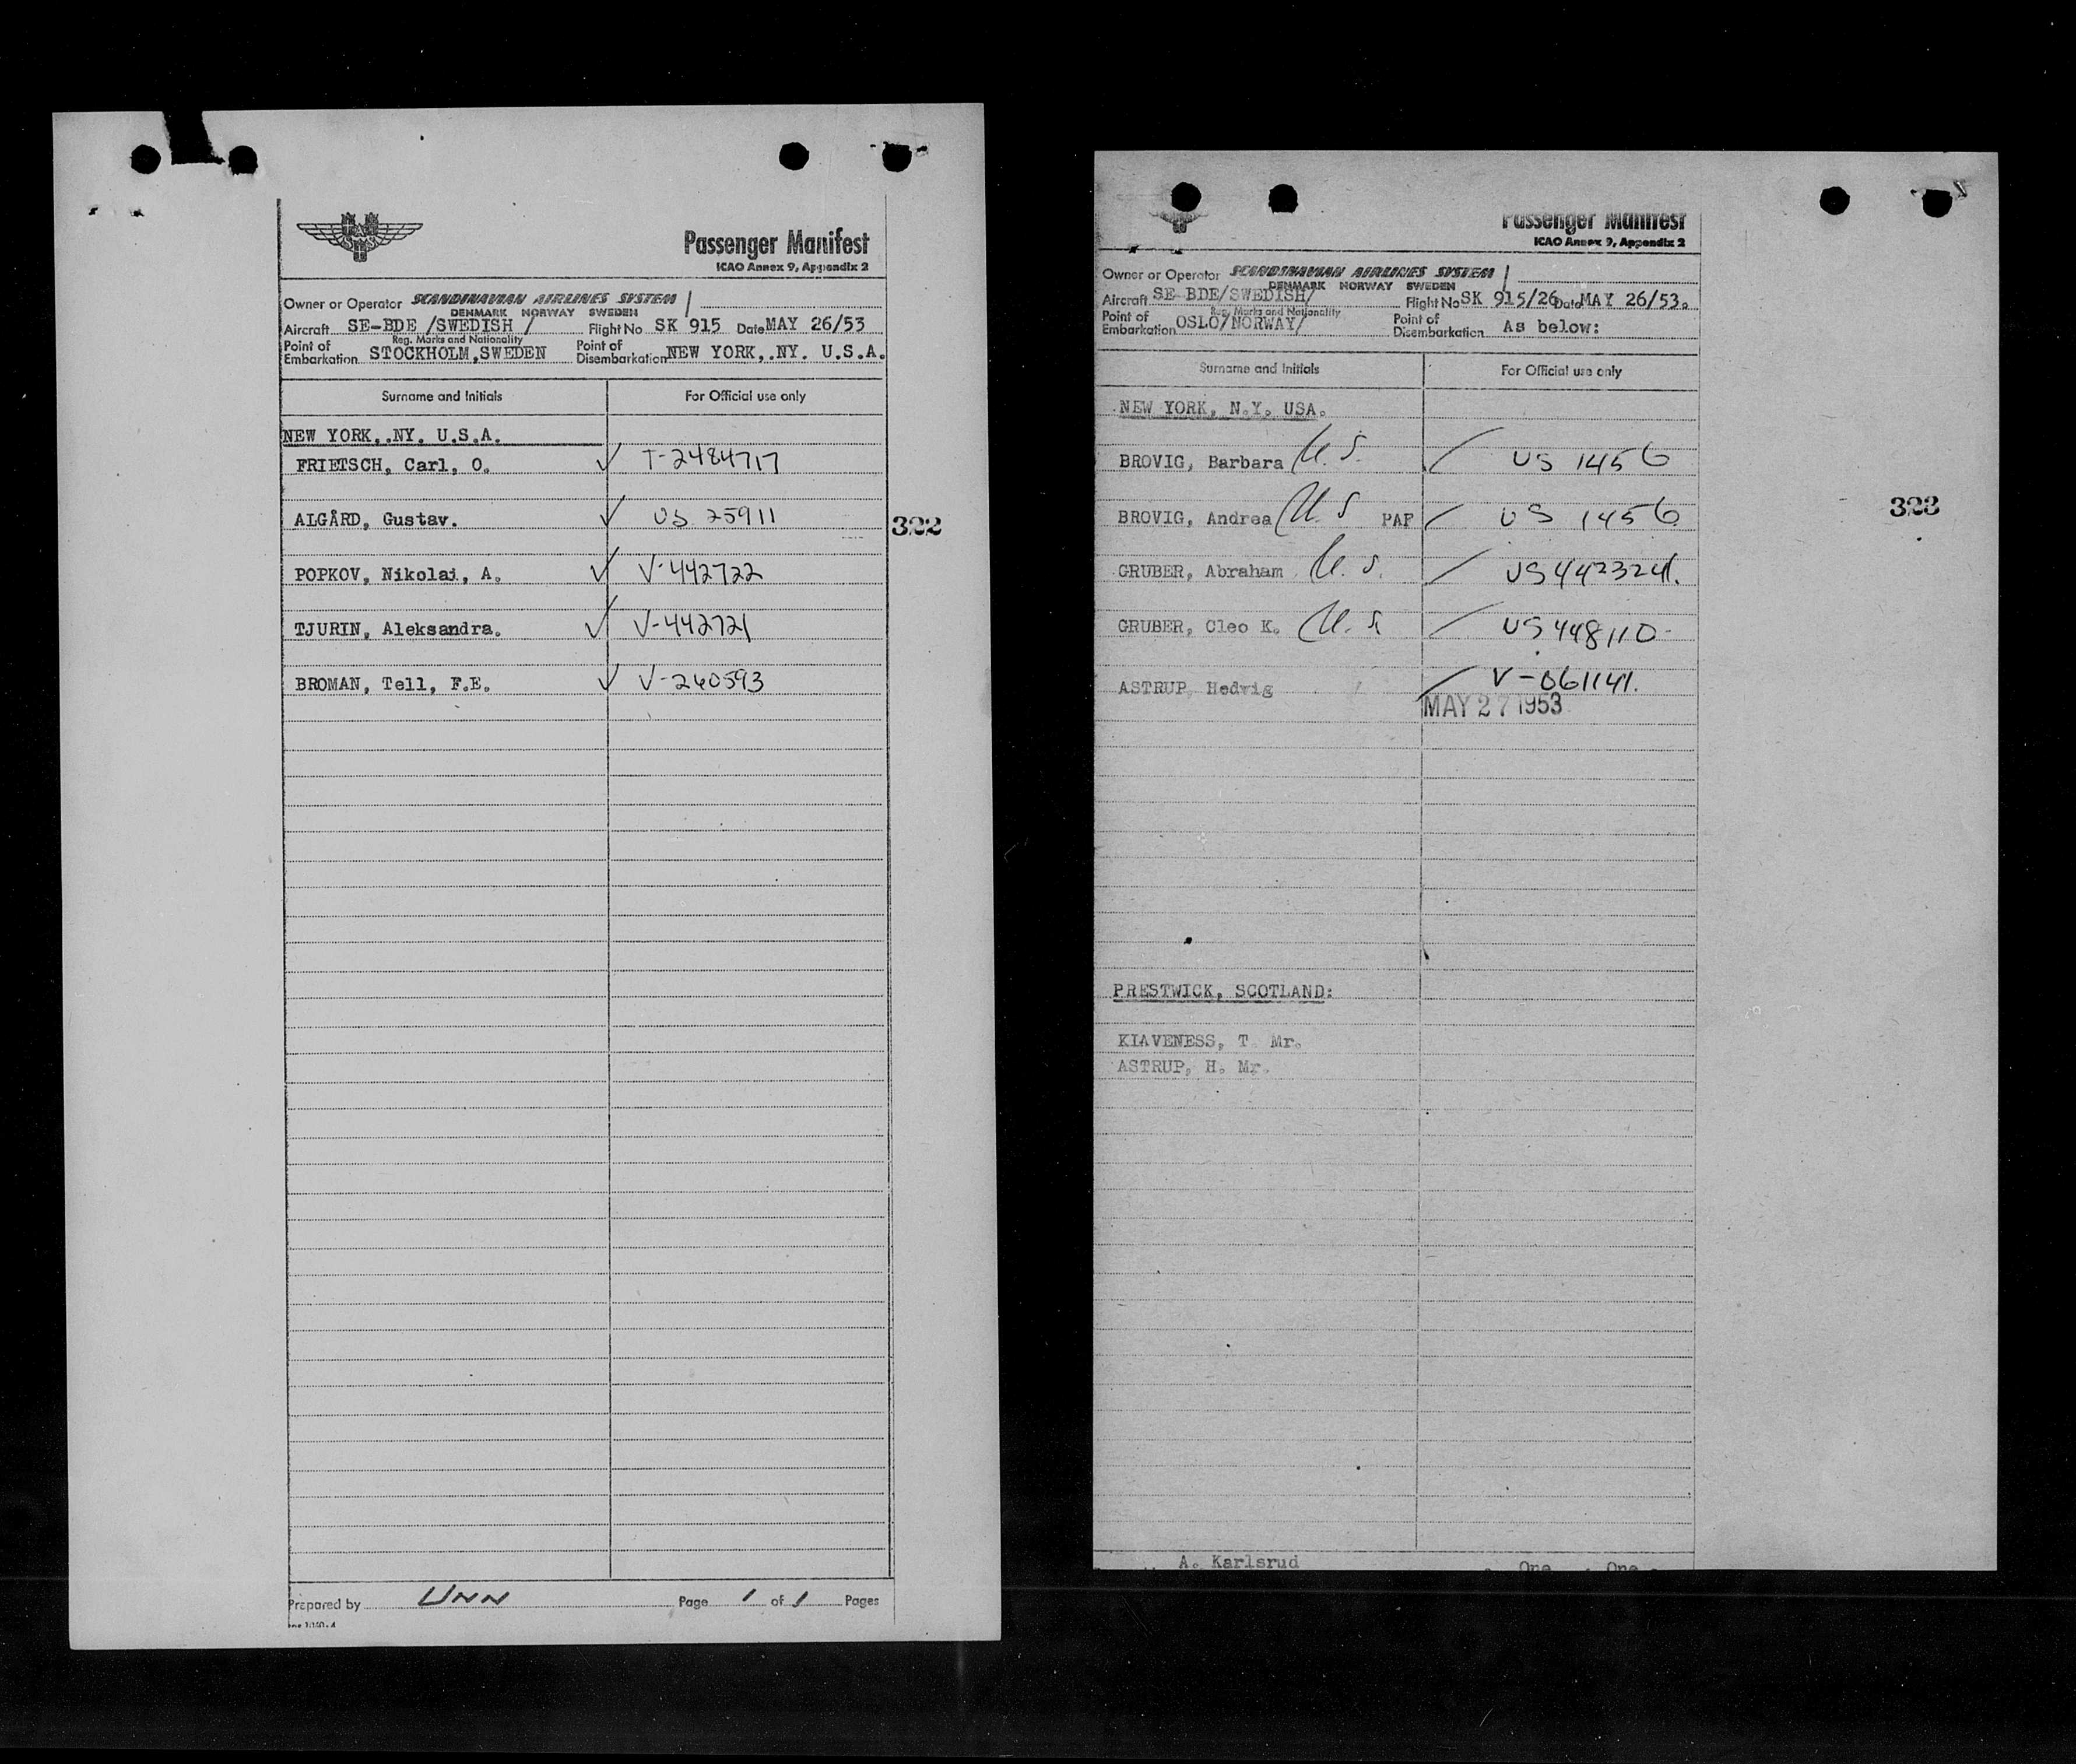 Passenger Manifest
ICAO Annex 9, Appendix 2
Owner or Operator SCANDINAVIAN AIRLINES SYSTEM
DENMARK NORWAY SWEDEN
Aircraft SE-BDE /SWEDISH / Flight No SK 915 Date MAY 26/53
Reg. Marks and Nationality
Point of Embarkation STOCKHOLM,SWEDEN Point of Disembarkation NEW YORK,.NY. U.S.A.
Surname and Initials For Official use only
NEW YORK,.NY. U.S.A.
FRIETSCH, Carl, O. ✓ T-2484717
ALGÅRD, Gustav. ✓ US 25911
322
POPKOV, Nikolai, A. ✓ V-442722
TJURIN, Aleksandra. ✓ V-442721
BROMAN, Tell, F.E. ✓ V-240593
Prepared by UNN Page 1 of 1 Pages
Passenger Manifest
ICAO Annex 9, Appendix 2
Owner or Operator SCANDINAVIAN AIRLINES SYSTEM
DENMARK NORWAY SWEDEN
Aircraft SE-BDE/SWEDISH/ Flight No SK 915/26 Date MAY 26/53.
Reg. Marks and Nationality
Point of Embarkation OSLO/NORWAY/ Point of Disembarkation As below:
Surname and Initials For Official use only
NEW YORK, N.Y. USA.
BROVIG, Barbara U.S. / US 1456
BROVIG, Andrea U.S PAF / US 1456
323
GRUBER, Abraham U.S. / US 442324
GRUBER, Cleo K. U.S / US 448110
ASTRUP, Hedvig / V-061141.
MAY 27 1953
PRESTWICK, SCOTLAND:
KIAVENESS, T Mr.
ASTRUP, H. Mr.
A. Karlsrud One One